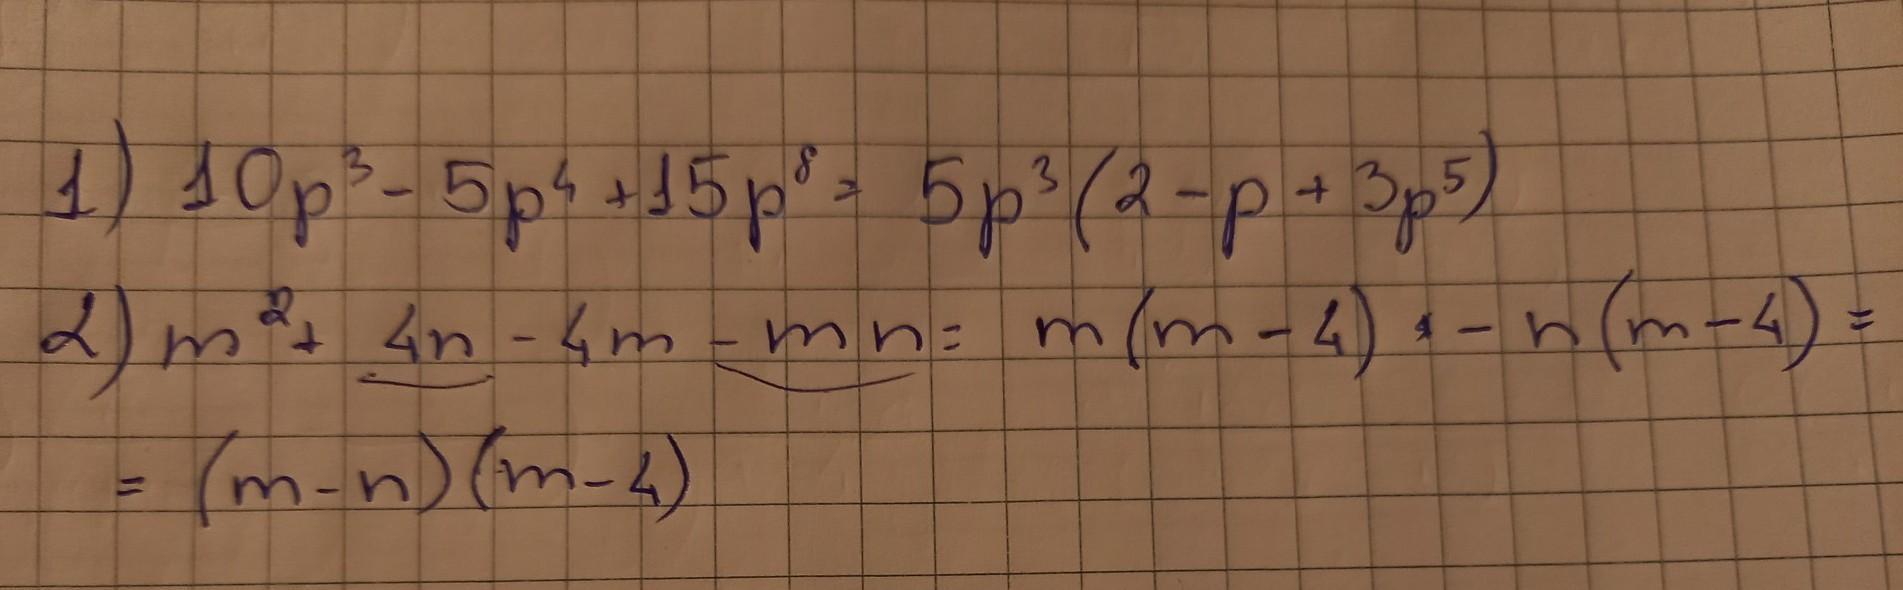 1) 10p³ - 5p⁴ + 15p⁸ = 5p³(2 - p + 3p⁵)
2) m² + 4n - 4m - mn = m(m - 4) - n(m - 4) =
= (m - n)(m - 4)